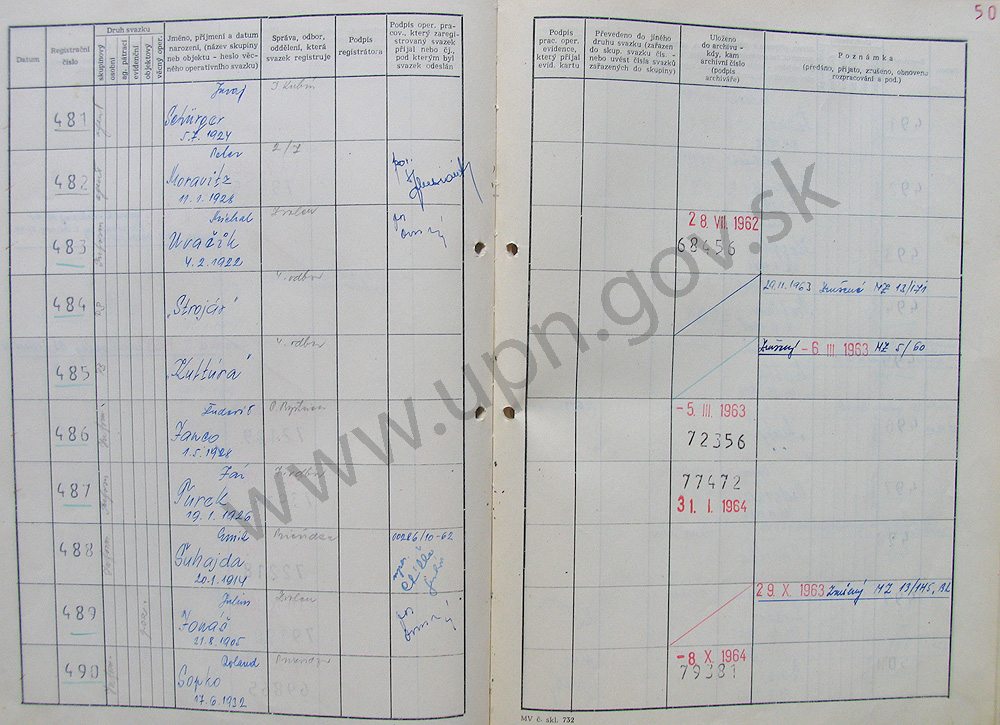 50
Datum
Registrační číslo
Druh svazku
skupinový
osobní
ag. pátrací
evidenční
objektový
věcný oper.
Jméno, příjmení a datum
narození, (název skupiny
neb objektu - heslo věc-
ného operativního svazku)
Správa, odbor,
oddělení, která
svazek registruje
Podpis
registrátora
Podpis oper. pra-
cov., který zaregi-
strovaný svazek
přijal nebo čj.,
pod kterým byl
svazek odeslán
Podpis
prac. oper.
evidence,
který přijal
evid. kartu
Převedeno do jiného
druhu svazku (zařazen
do skup. svazku čís. -
nebo uvést čísla svazků
zařazených do skupiny)
Uloženo
do archivu -
kdy, kam
archivní číslo
(podpis
archiváře)
Poznámka
(předáno, přijato, zrušeno, obnoveno
rozpracování a pod.)
Juraj
481 agent
5.7.1924
Peter 2/7
482 agent Moravitz
11.1.1928
Michal Zvolen
483 inform
4.2.1922
28. VII. 1962
68456
4. odbor
484 „Strojár"
29.11.1963 Zrušené MZ 13/171
4. odbor
485 „Kultúra"
Zrušený - 6. III. 1963 MZ 5/60
Ľudovít B. Bystrica
486 inform Janco
1.5.1928
- 5. III. 1963
72356
Ján
487 inform Turek
19.1.1926
77472
31. I. 1964
Emil Prievidza 00286/10-62
488 inform Šuhajda
20.1.1914
Július Zvolen
489 Jonáš
21.8.1905
29. X. 1963 Zrušený MZ 13/145, BL
Roland Prievidza
490 inform Sopko
17.6.1932
-8. X. 1964
79381
MV č. skl. 732
www.upn.gov.sk